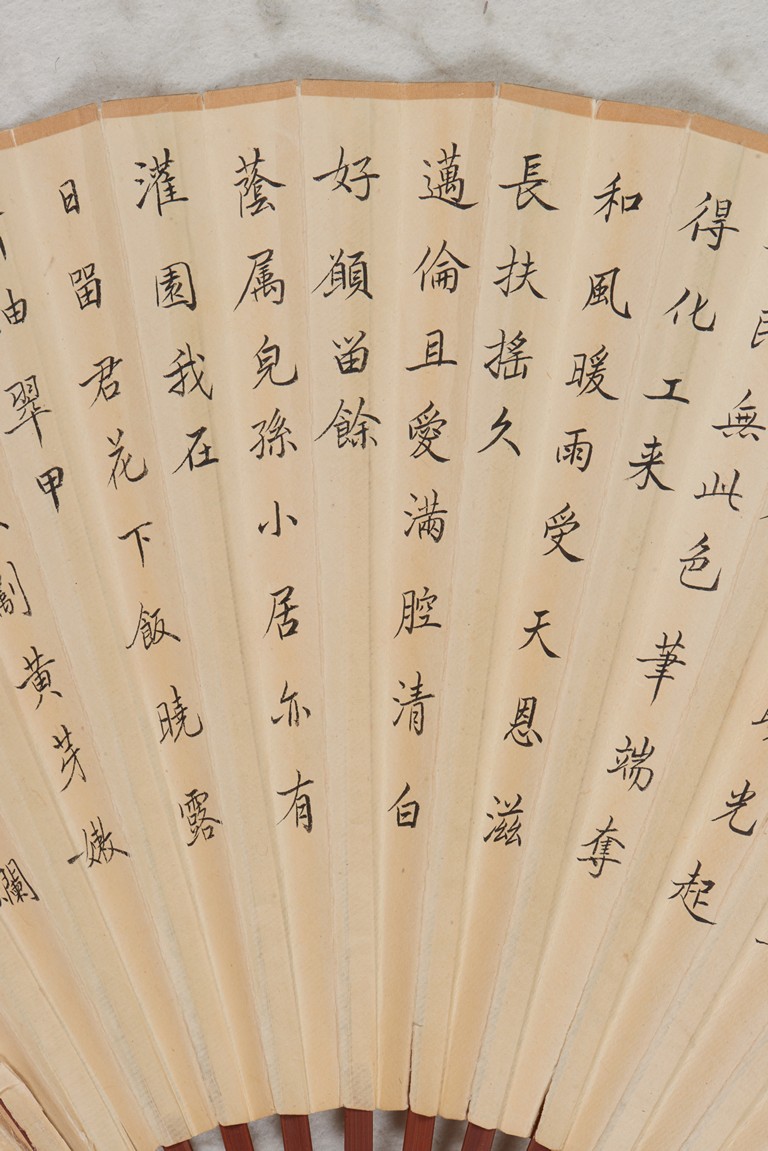 光起
民無此色筆端奪
得化工来
和風暖雨受天恩滋
長扶搖久
邁倫且愛滿腔清白
好願留餘
蔭属兒孫小居亦有
灌園我在
日留君花下飯曉露
翠甲
劚黄芽嫩
斕